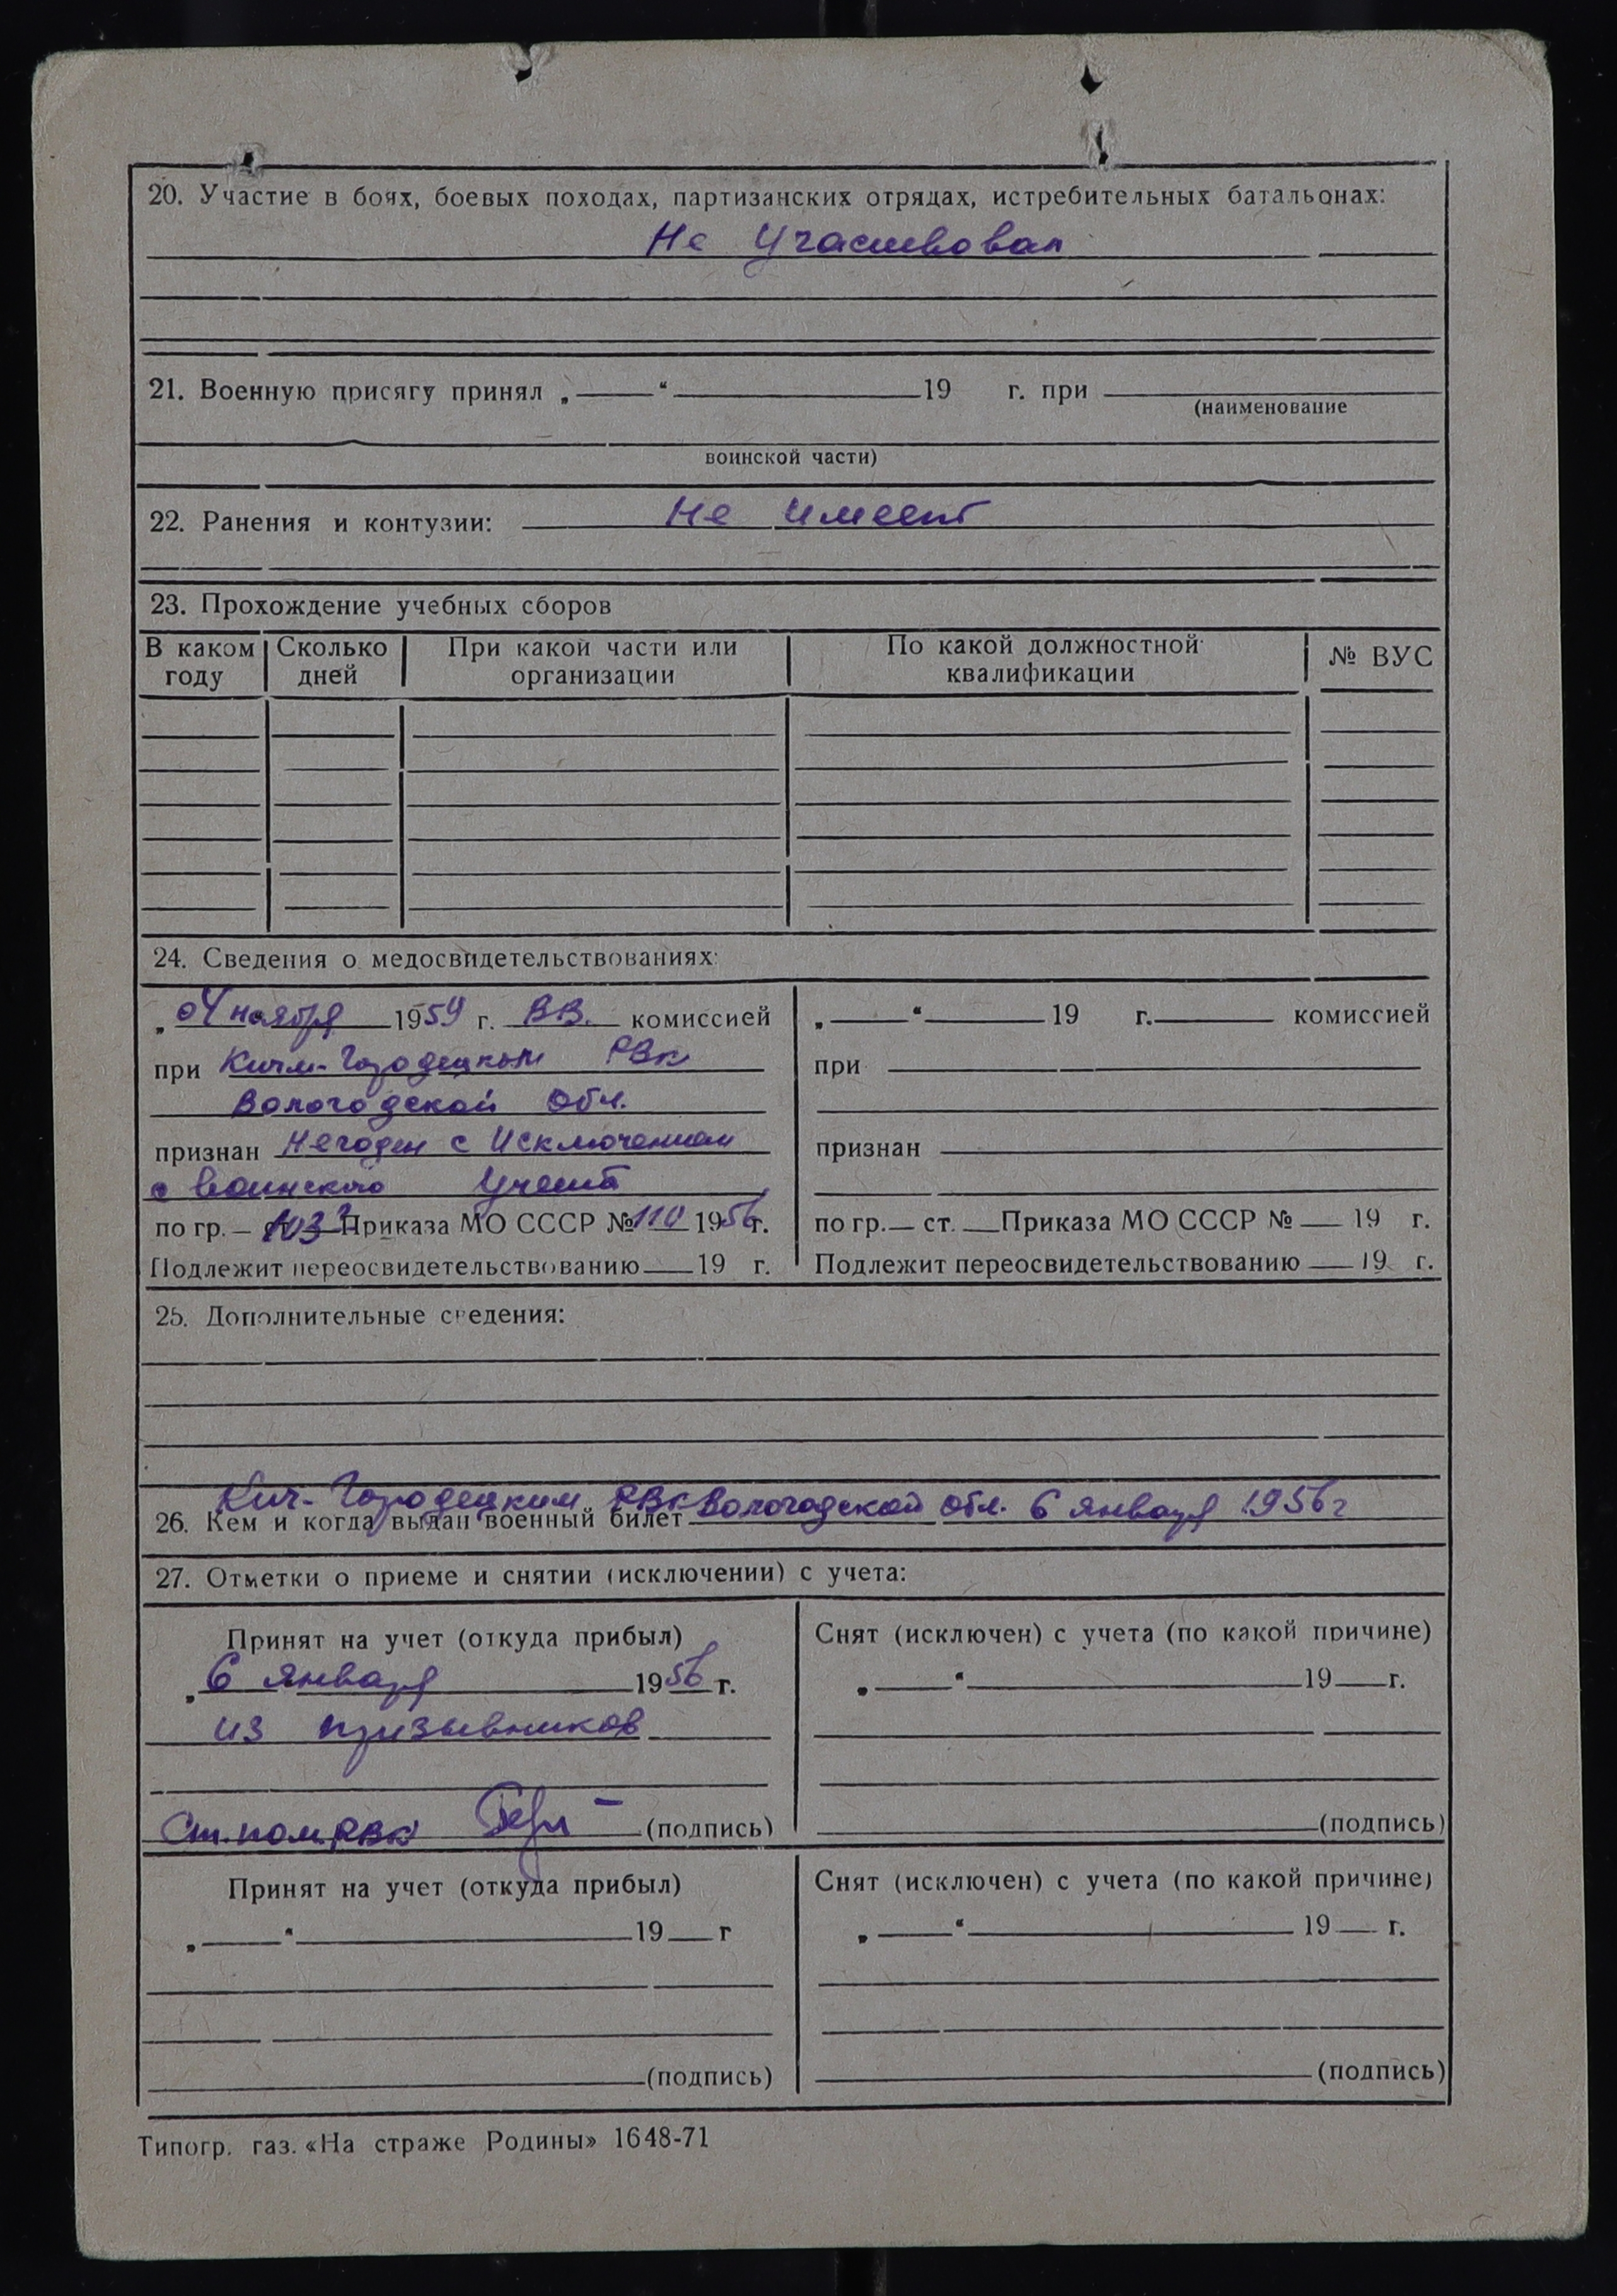 20. Участие в боях, боевых походах, партизанских отрядах, истребительных батальонах:
Не Участвовал
21. Военную присягу принял „ “ 19 г. при
(наименование
воинской части)
22. Ранения и контузии: Не имеет
23. Прохождение учебных сборов
В каком году | Сколько дней | При какой части или организации | По какой должностной квалификации | № ВУС
24. Сведения о медосвидетельствованиях:
„04 ноября 1959 г. ВВ. комиссией
при Кичм-Городецком РВк
Вологодской Обл.
признан Негоден с Исключением
с воинского Учета
по гр. – ст. 103 Приказа МО СССР №110 1956г.
Подлежит переосвидетельствованию 19 г.
„ “ 19 г. комиссией
при
признан
по гр. ст. Приказа МО СССР № 19 г.
Подлежит переосвидетельствованию 19 г.
25. Дополнительные сведения:
Кич-Городецким РВк Вологодской обл. 6 января 1956г
26. Кем и когда выдан военный билет
27. Отметки о приеме и снятии (исключении) с учета:
Принят на учет (откуда прибыл)
„6 января 1956 г.
из призывников
Ст. пом. РВК (подпись)
Снят (исключен) с учета (по какой причине)
„ “ 19 г.
(подпись)
Принят на учет (откуда прибыл)
„ “ 19 г
(подпись)
Снят (исключен) с учета (по какой причине)
„ “ 19 г.
(подпись)
Типогр. газ. «На страже Родины» 1648-71